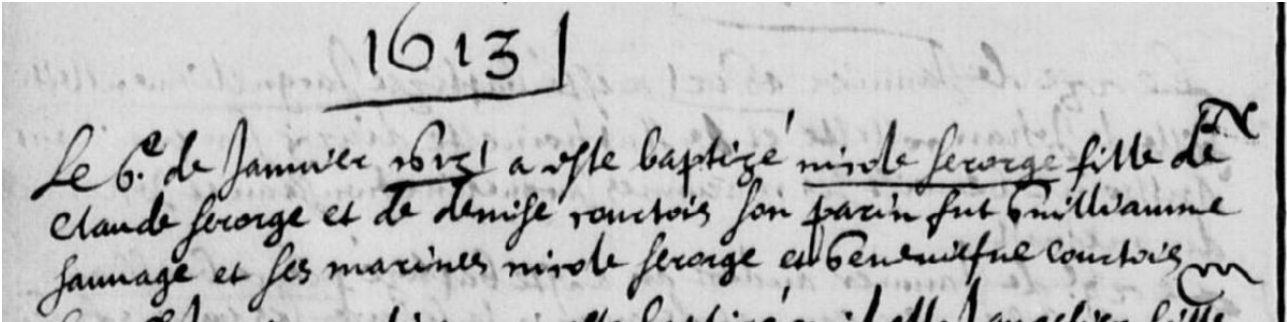 1613
Le 6e de Janvier 1613 a este baptizé nicole serorge fille de
claude serorge et de denise courtois son parin fut Guilliaume
sauvage et ses marines nicole serorge et Geneuiefue courtois